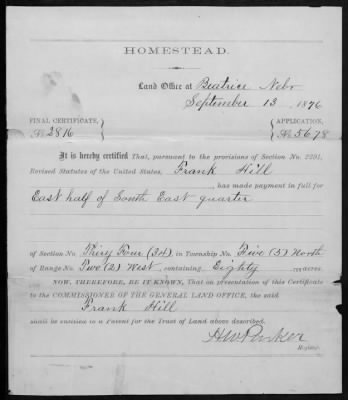 HOMESTEAD.
Land Office at Beatrice Nebr
September 13, 1876
FINAL CERTIFICATE, APPLICATION,
No 2816 No 5678
It is hereby certified That, pursuant to the provisions of Section No. 2291,
Revised Statutes of the United States, Frank Hill
has made payment in full for
East half of South East quarter
of Section No. Thirty Four (34), in Township No. Five (5) North
of Range No. Two (2) West, containing Eighty acres.
NOW, THEREFORE, BE IT KNOWN, That on presentation of this Certificate
to the COMMISSIONER OF THE GENERAL LAND OFFICE, the said
Frank Hill
shall be entitled to a Patent for the Tract of Land above described.
HW Parker
Register.